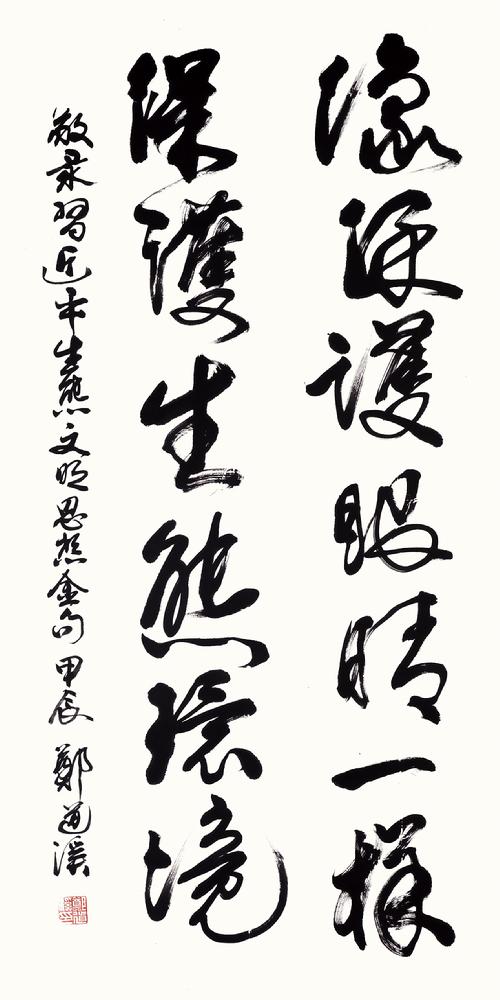 像保護眼睛一樣
保護生態環境
敬录習近平生態文明思想金句 甲辰 鄭道溪